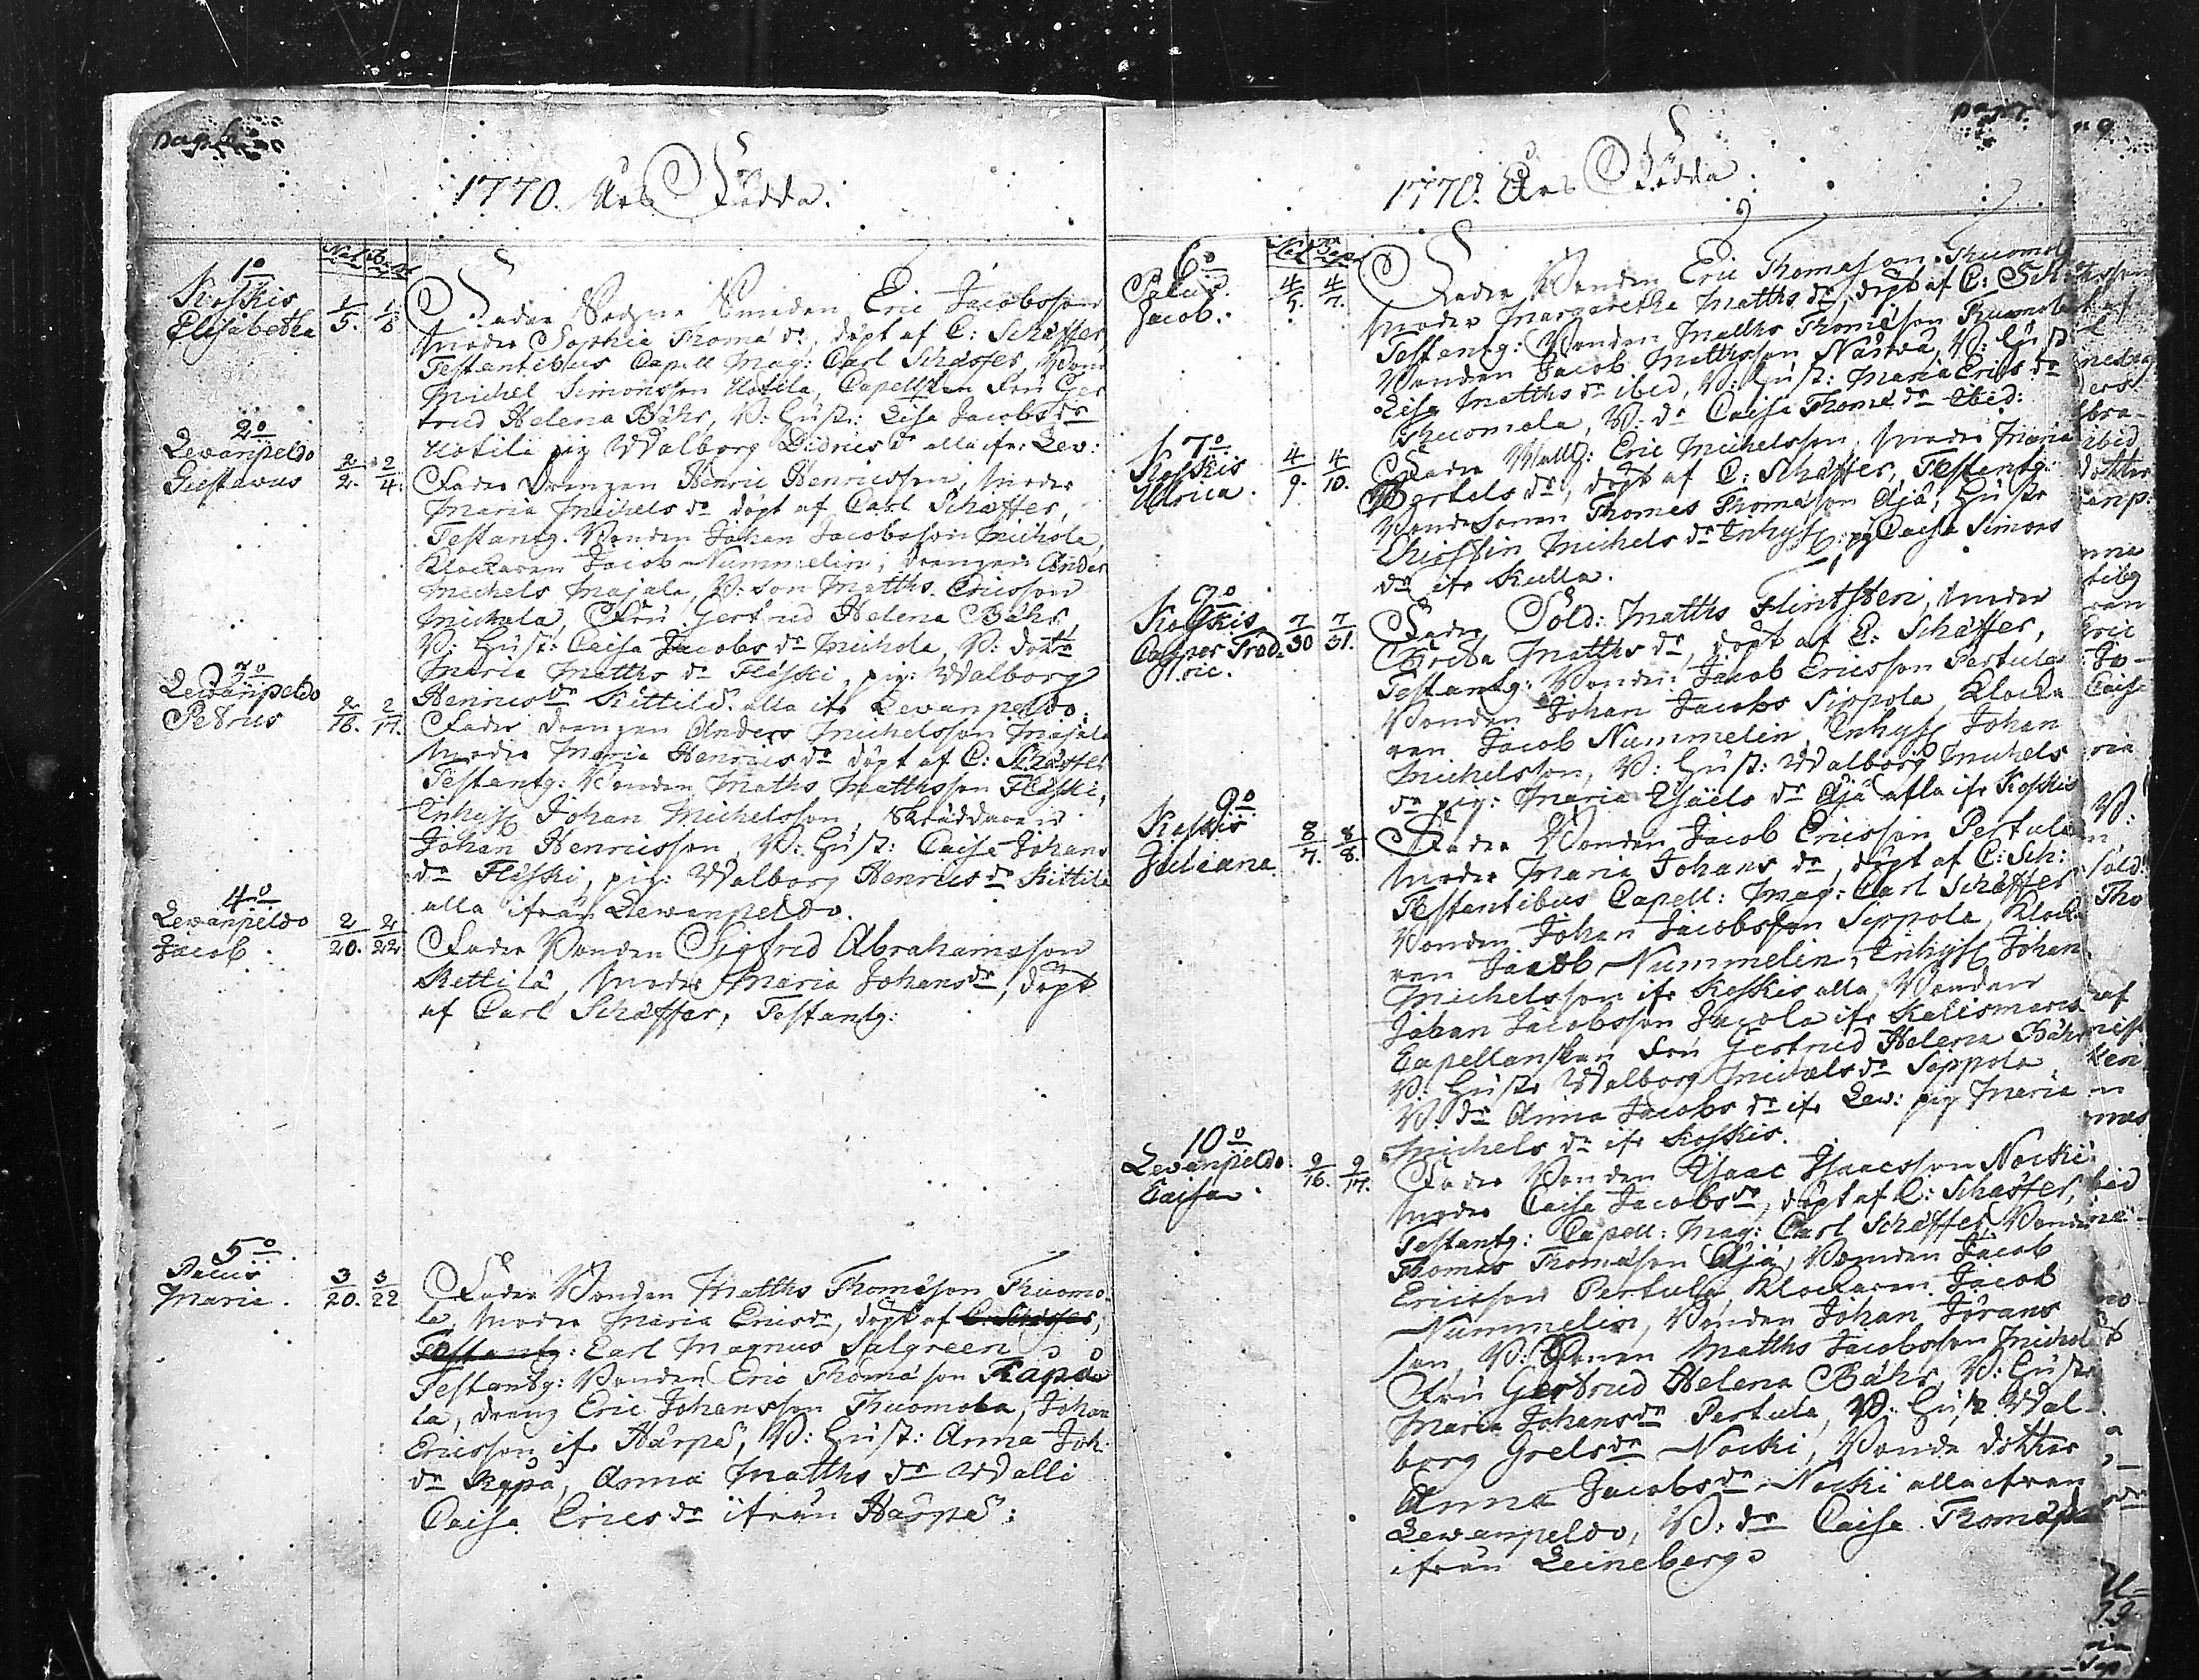 1770. Års Födda.
Nat. Bapt.
1o
Koskis
Elisabetha
1/5. 1/6
Fader Sochne Smeden Eric Jacobsson
Moder Sophia Thomæ dr, döpt af C: Schæffer,
Testantibus Capell Mag: Carl Schæffer, Bond
Michel Simonsson Uotila, Capellskan Fru Ger
trud Helena Bähr, B: Hust: Lisa Jacobs dr
Uotila pig Walborg Didrics dr alla ifr. Lev:
2o
Lewänpeldo
Gustavus
2/2. 2/4.
Fader Drengen Henric Henricsson, Moder
Maria Michels dr döpt af Carl Schæffer,
Testantg. Bonden Johan Jacobsson Michola,
Klockaren Jacob Nummelin, drengen Anders
Michels Majala, B: son Matths Ericsson
Michola, Fru Gertrud Helena Bähr,
B: Hust: Caisa Jacobs dr Michola, B: dottr
Maria Matths dr Fläski, pig: Walborg
Henrics dr Kittilä. alla ifr Lewänpeldo.
3o
Lewänpeldo
Petrus
2/16. 2/17.
Fader drengen Anders Michelsson Majala
Moder Maria Henrics dr döpt af C: Schæffer
Testantg: Bonden Maths Matthsson Fläski,
Inhys Johan Michelsson, Skräddaren
Johan Henricsson, B: Hust: Caisa Johans
dr Fläski, pig: Walborg Henrics dr Kittilä
alla ifrån Lewenpeldo.
4o
Lewänpeldo
Jacob.
2/20. 2/22
Fader Bonden Sigfred Abrahamsson
Kettilä, Moder Maria Johans dr, döpt
af Carl Schæffer, Testantg:
5o
Maria.
3/20. 3/22
Fader Bonden Matths Thomæson Thuomo
la, Moder Maria Erics dr, döpt af C: Schæffer,
Testantg: Carl Magnus Salgreen
Testantg: Bonden Eric Thomæson
la, dreng Eric Johansson Thuomola, Johan
Ericsson ifr Härpe, B: Hust: Anna Joh:
dr Kapå, Anna Matths dr Walli
Caisa Erics dr ifrån Härpe:
1770. Års Födda.
Nat. Bapt
6o
Jacob.
4/5. 4/7.
Fader Bonden Eric Thomæson Thuomol
Moder Margaretha Matths dr, döpt af C: Sch
Testantg: Bonden Matths Thomæson Thuomola
Bonden Jacob Matthsson Närwä, B: Hust
Lisa Matths dr ibid, B: Hust: Maria Erics dr
Thuomola, B: dr Caisa Thomæ dr ibid:
7o
Koskis
Ulrica.
4/9. 4/10.
Fader Eric Michelsson, Moder Maria
Bertels dr, döpt af C: Schæffer, Testantg:
Bondesonen Thomes Thomæson Äjä, Hustr
Christin Michels dr Inhys: pig Caisa Simons
dr ifr Kulla.
Koskis
Casper Fred
ric.
7/30 7/31.
Fader Sold: Matths Flintsten, Moder
Greta Matths dr, döpt af C: Schæffer,
Testantg: Bonden Jacob Ericsson Pertula
Bonden Johan Jacobs Sippola, Klocka
ren Jacob Nummelin, Inhys Johan
Michelsson, B: Hust: Walborg Michels
dr pig: Maria Esaiels dr Äjä alla ifr Koskis
9o
Koskis
Juliana.
8/7. 8/8.
Fader Bonden Jacob Ericsson Pertula
Moder Maria Johans dr, döpt af C: Sch:
Testantibus Capell: Mag: Carl Schæffer
Bonden Johan Jacobsson Seppola, Klocka
ren Jacob Nummelin, Inhys Johan
Michelsson ifr Koskis alla, Bonden
Johan Jacobsson Jacola ifr Kalismarck
Capellanskan Fru Gertrud Helena Bähr
B: Hustr Walborg Michels dr Seppola,
B: dr Anna Jacobs dr ifr Lew: pig Maria
Michels dr ifr Koskis.
10o
Lewänpeldo
Caisa.
9/16. 9/17.
Fader Bonden Isaac Isaacsson Nocki
Moder Caisa Jacobs dr, döpt af C: Schæffer,
Testantg: Capell: Mag: Carl Schæffer, Bonde
Thomas Thomæson Äjä, Bonden Jacob
Ericsson Pertula, Klockaren Jacob
Nummelin, Bonden Johan Jörans
son, B: Sonen Matths Jacobsson Michol
Fru Gertrud Helena Bähr, B: Hustr
Maria Johans dr Pertula, B: Hustr Wal-
borg Grels dr Nocki, Bonde dotter
Anna Jacobs dr Nocki alla ifrån
Lewanpeldo, B: dr Caisa Thomæ
ifrån Leineberg